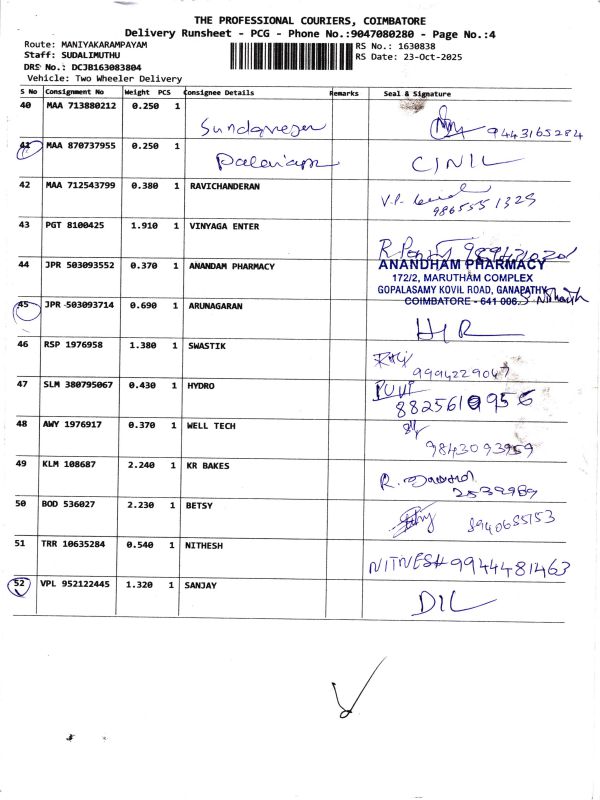 THE PROFESSIONAL COURIERS, COIMBATORE
Delivery Runsheet - PCG - Phone No.:9047080280 - Page No.:4
Route: MANIYAKARAMPAYAM RS No.: 1630838
Staff: SUDALIMUTHU RS Date: 23-Oct-2025
DRS No.: DCJB163083804
Vehicle: Two Wheeler Delivery
S No Consignment No Weight PCS Consignee Details Remarks Seal & Signature
40 MAA 713880212 0.250 1
9443165284
41 MAA 870737955 0.250 1
42 MAA 712543799 0.380 1 RAVICHANDERAN V.P.
9865551329
43 PGT 8100425 1.910 1 VINYAGA ENTER
44 JPR 503093552 0.370 1 ANANDAM PHARMACY ANANDHAM PHARMACY
172/2, MARUTHAM COMPLEX
GOPALASAMY KOVIL ROAD, GANAPATHY
COIMBATORE - 641 006.
45 JPR 503093714 0.690 1 ARUNAGARAN
46 RSP 1976958 1.380 1 SWASTIK
9994229047
47 SLM 380795067 0.430 1 HYDRO
8825610956
48 AWY 1976917 0.370 1 WELL TECH
9843093959
49 KLM 108687 2.240 1 KR BAKES R.
2539989
50 BOD 536027 2.230 1 BETSY 8940655153
51 TRR 10635284 0.540 1 NITHESH
9944481463
52 VPL 952122445 1.320 1 SANJAY
DIL